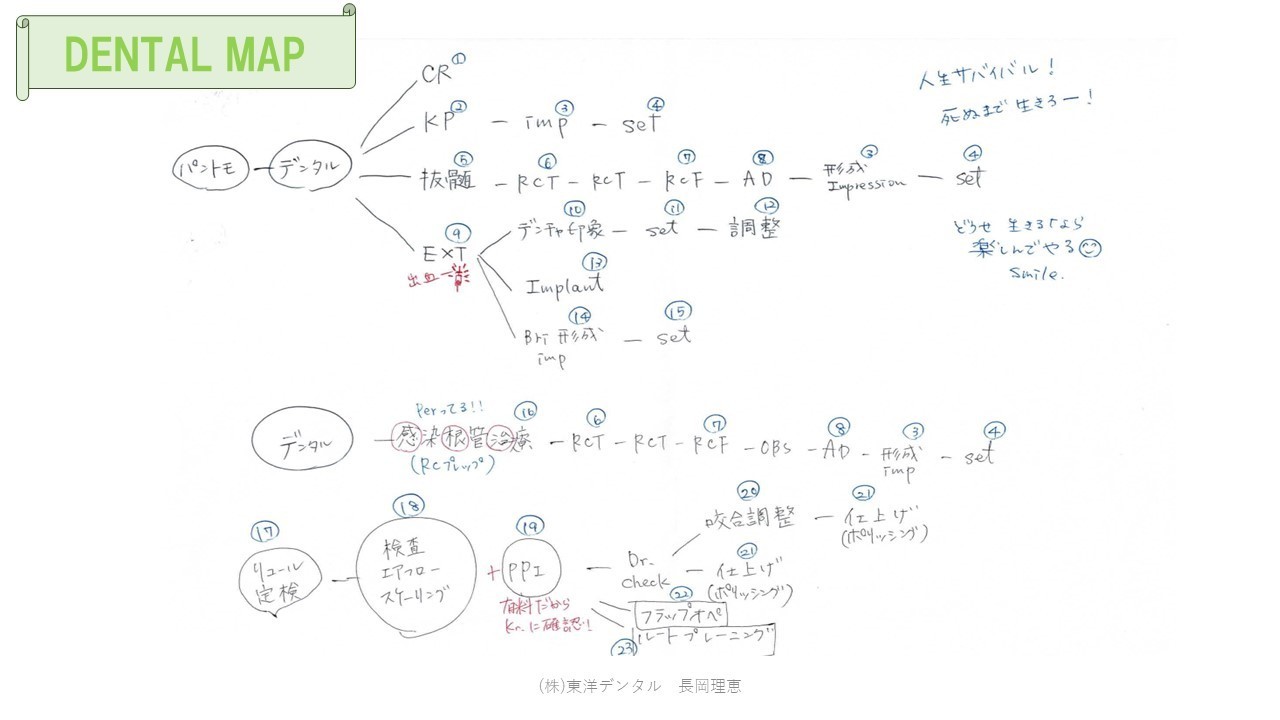 DENTAL MAP
CR①
人生サバイバル!
死ぬまで生きろー!
KP② — imp③ — set④
パントモ — デンタル
抜髄⑤ — RCT⑥ — RCT — RCF⑦ — AD⑧ — 形成③ — set④
Impression
EXT⑨
出血
デンチャ印象⑩ — set⑪ — 調整⑫
どうせ 生きるなら
楽しんでやる
smile.
Implant⑬
Bri 形成⑭ — set⑮
imp
Perってる!!
デンタル — 感染根管治療⑯ — RCT⑥ — RCT — RCF⑦ — OBS — AD⑧ — 形成③ — set④
imp
(RCプレップ)
⑰ リコール
定検
⑱ 検査
エアフロー
スケーリング
+ ⑲ PPI
有料だから
Kr.に確認!
Dr.
check
咬合調整⑳ — 仕上げ㉑
(ポリッシング)
仕上げ㉑
(ポリッシング)
フラップオペ㉒
㉓ ルートプレーニング
(株)東洋デンタル 長岡理恵